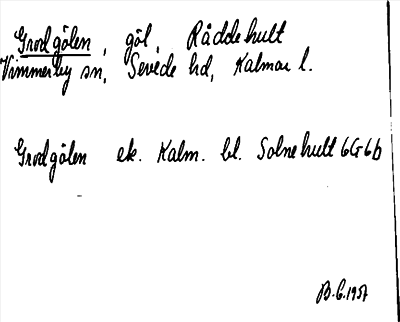 Grodgölen, göl, Råddehult
Vimmerby sn, Sevede hd, Kalmar l.
Grodgölen ek. Kalm. bl. Solnehult 6G6b
B.G.1957